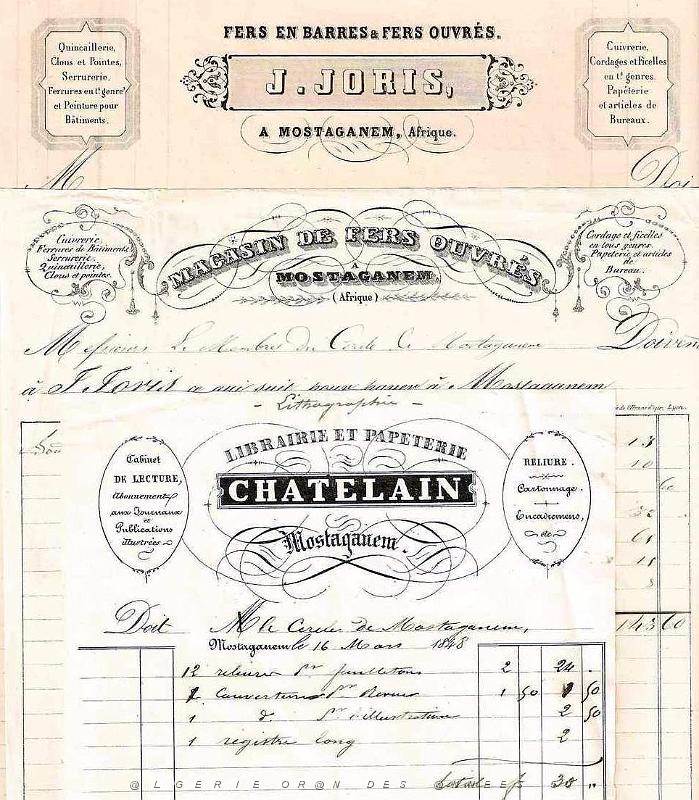 FERS EN BARRES & FERS OUVRÉS.
J. JORIS,
A MOSTAGANEM, Afrique.
Quincaillerie,
Clous et Pointes,
Serrurerie,
Ferrures en tt genre
et Peinture pour
Bâtiments.
Cuivrerie,
Cordages et ficelles
en tt genres.
Papéterie
et articles de
Bureaux.
M
Doi
MAGASIN DE FERS OUVRÉS
A
MOSTAGANEM,
(Afrique)
Cuivrerie,
Ferrures de Bâtiments
Serrurerie,
Quincaillerie,
Clous et pointes.
Cordage et ficelles
en tous genres.
Papeterie et articles
de
Bureau.
Messieurs Le Membres du Cercle de Mostaganem Doiven
à J. Joris ce qui suit pour à Mostaganem
- Lithographie -
Lyon.
13
10
60
11
8
143 60
LIBRAIRIE ET PAPETERIE
CHATELAIN
Mostaganem.
Cabinet
DE LECTURE,
Abonnements
aux Journaux
et
Publications
illustrées
RELIURE.
Cartonnage.
Encadremens,
etc
Doit M le Cercle de Mostaganem,
Mostaganem le 16 Mars 1848
12 reliures pr feuilletons 2 24 .
1 Couverture pr Revue 1 50 1 50
1 do pr l'illustration 2 50
1 registre long 2
total f 30 "
@LGERIE OR@N DES @